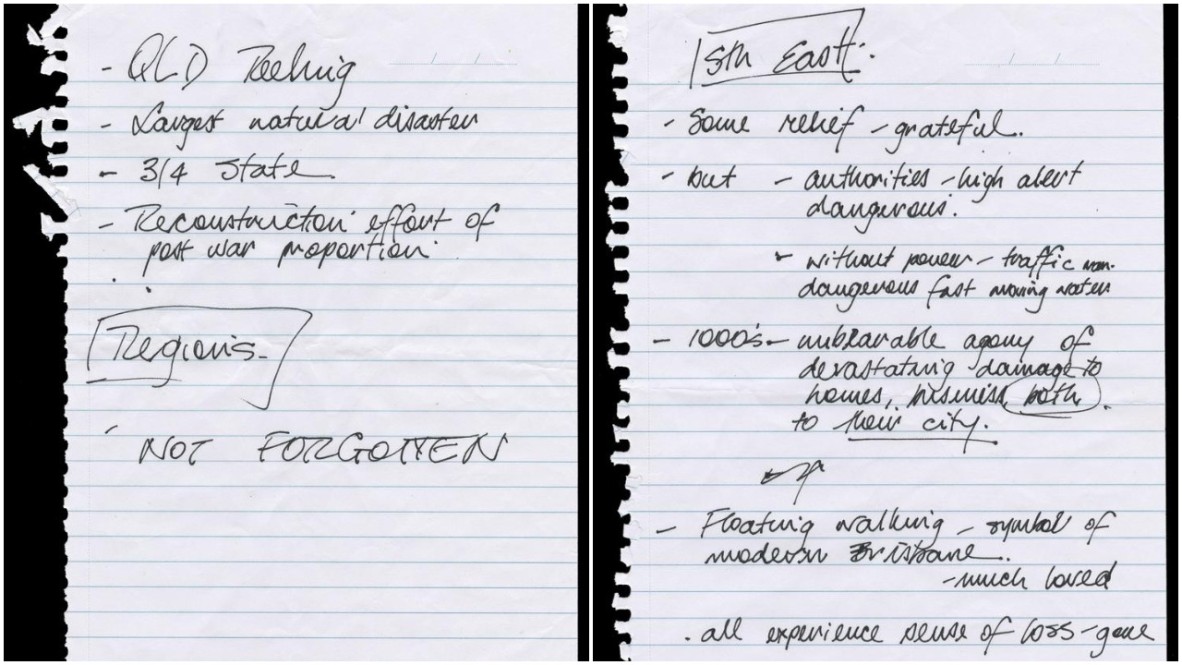 - QLD Reeling
- Largest natural disaster
- 3/4 State
- Reconstruction effort of
post war proportion.
Regions -
NOT FORGOTTEN
Sth East:
- Some relief - grateful.
- but - authorities - high alert
dangerous.
- without power - traffic
dangerous fast moving water
- 1000's - unbearable agony of
devastating damage to
homes, business, both
to their city.
- Floating walking - symbol of
modern Brisbane.
- much loved
. all experience sense of loss - gone